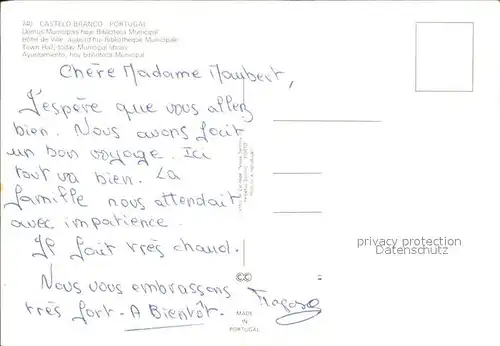 740 CASTELO BRANCO - PORTUGAL
Domus Municipalis hoje Biblioteca Municipal
Hôtel de Ville, aujourd'hui Bibliothèque Municipale
Town Hall, today Municipal library
Ayuntamiento, hoy biblioteca Municipal
Chère Madame Maubert,
J'espère que vous allez
bien. Nous avons fait
un bon voyage. Ici
tout va bien. La
famille nous attendait
avec impatience.
Il fait très chaud.
Nous vous embrassons
très fort - A Bientôt.
MADE
IN
PORTUGAL
privacy protection
Datenschutz